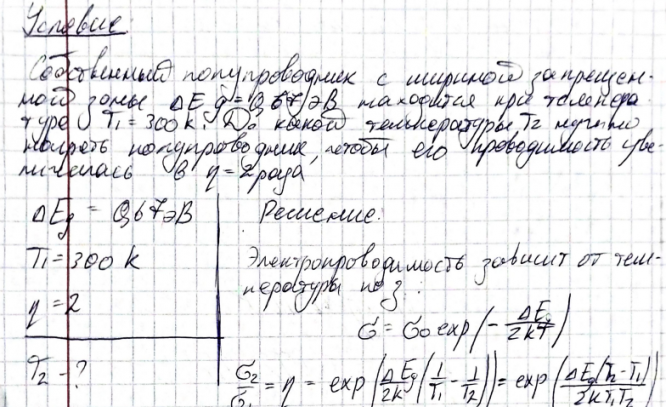 Условие:
Собственный полупроводник с шириной запрещен-
ной зоны ΔEg = 0,67 эВ находится при темпера
туре T1 = 300 k. До какой температуры T2 нужно
нагреть полупроводник, чтобы его проводимость уве-
личилась в η = 2 раза
ΔEg = 0,67 эВ
Решение:
T1 = 300 k
Электропроводимость зависит от тем-
пературы по з:
η = 2
σ = σ0 exp(-ΔEg/2kT)
T2 - ?
σ2/σ1 = η = exp(ΔEg/2k(1/T1 - 1/T2)) = exp(ΔEg(T2-T1)/2kT1T2)